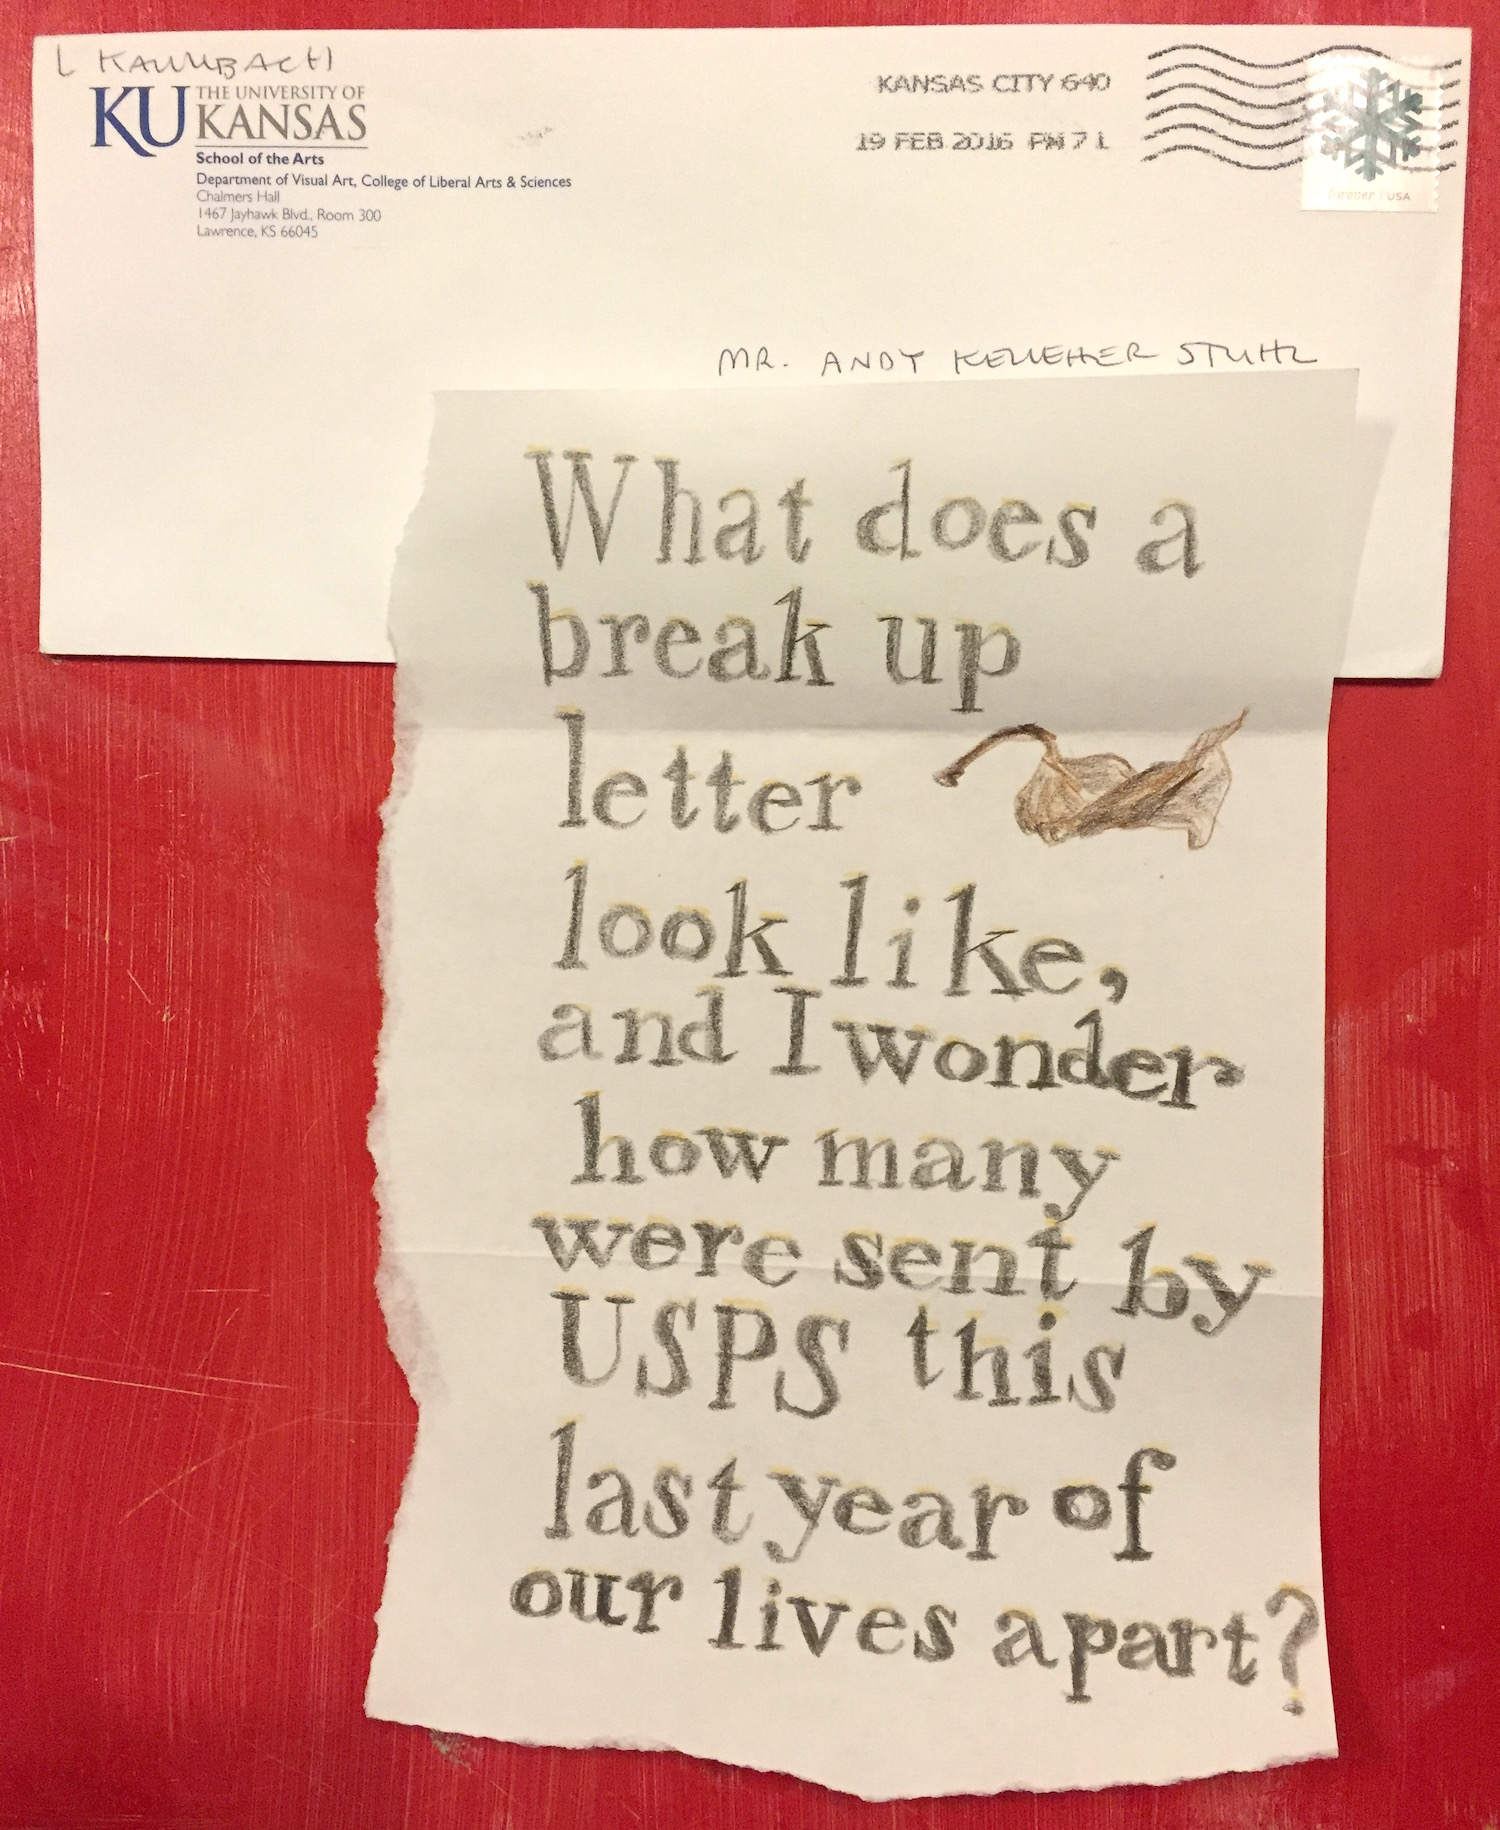 L KALLMBACH
KU THE UNIVERSITY OF
KANSAS
School of the Arts
Department of Visual Art, College of Liberal Arts & Sciences
Chalmers Hall
1467 Jayhawk Blvd., Room 300
Lawrence, KS 66045
KANSAS CITY 640
19 FEB 2016 PM 7 L
forever / USA
MR. ANDY KELLEHER STUHL
What does a
break up
letter
look like,
and I wonder
how many
were sent by
USPS this
last year of
our lives apart?